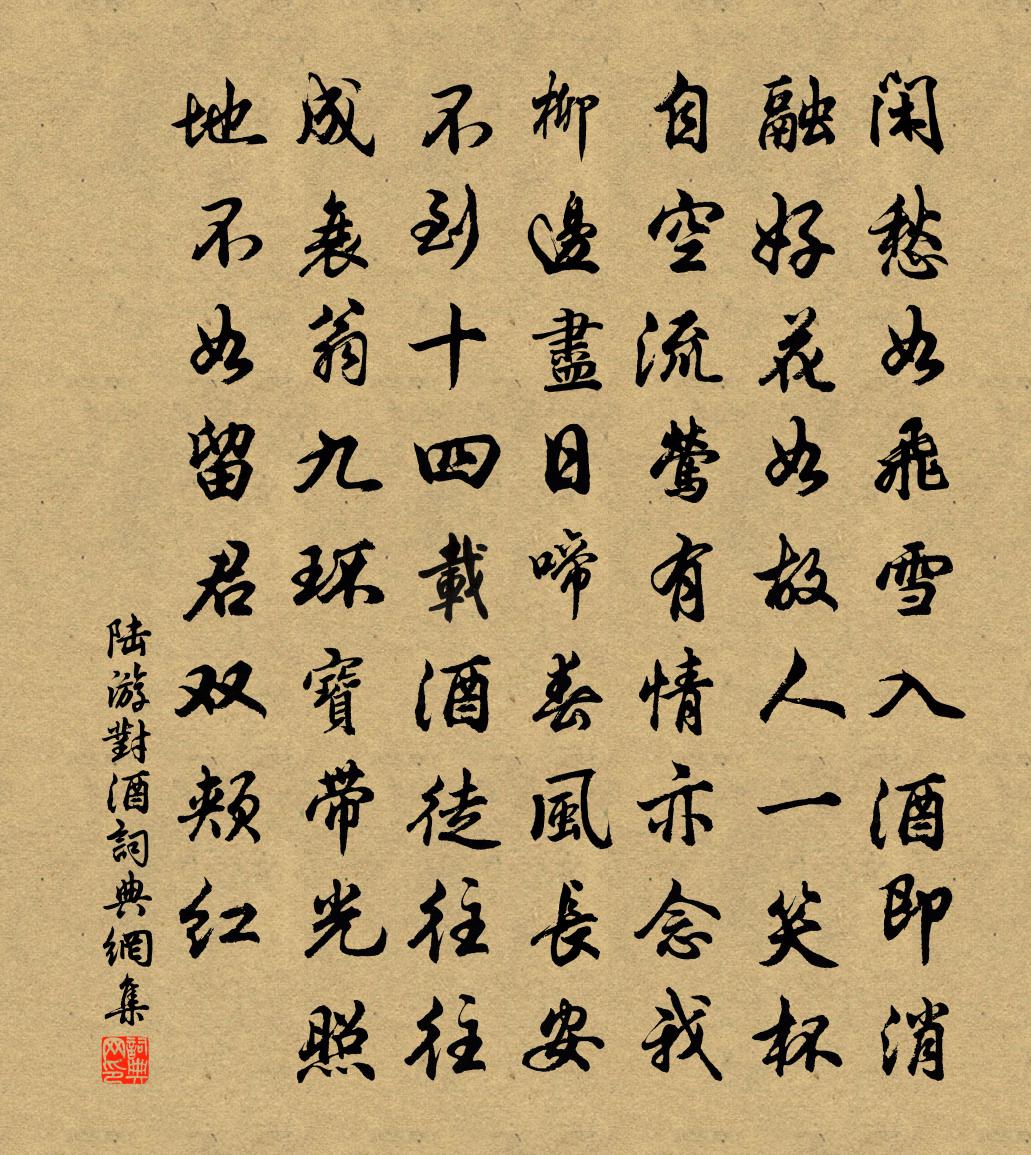 闲愁如飛雪入酒即消
融好花如故人一笑杯
自空流莺有情亦念我
柳邊盡日啼春風長安
不到十四載酒徒往往
成衰翁九环寶带光照
地不如留君双颊红
陆游對酒詞典網集
詞典网印